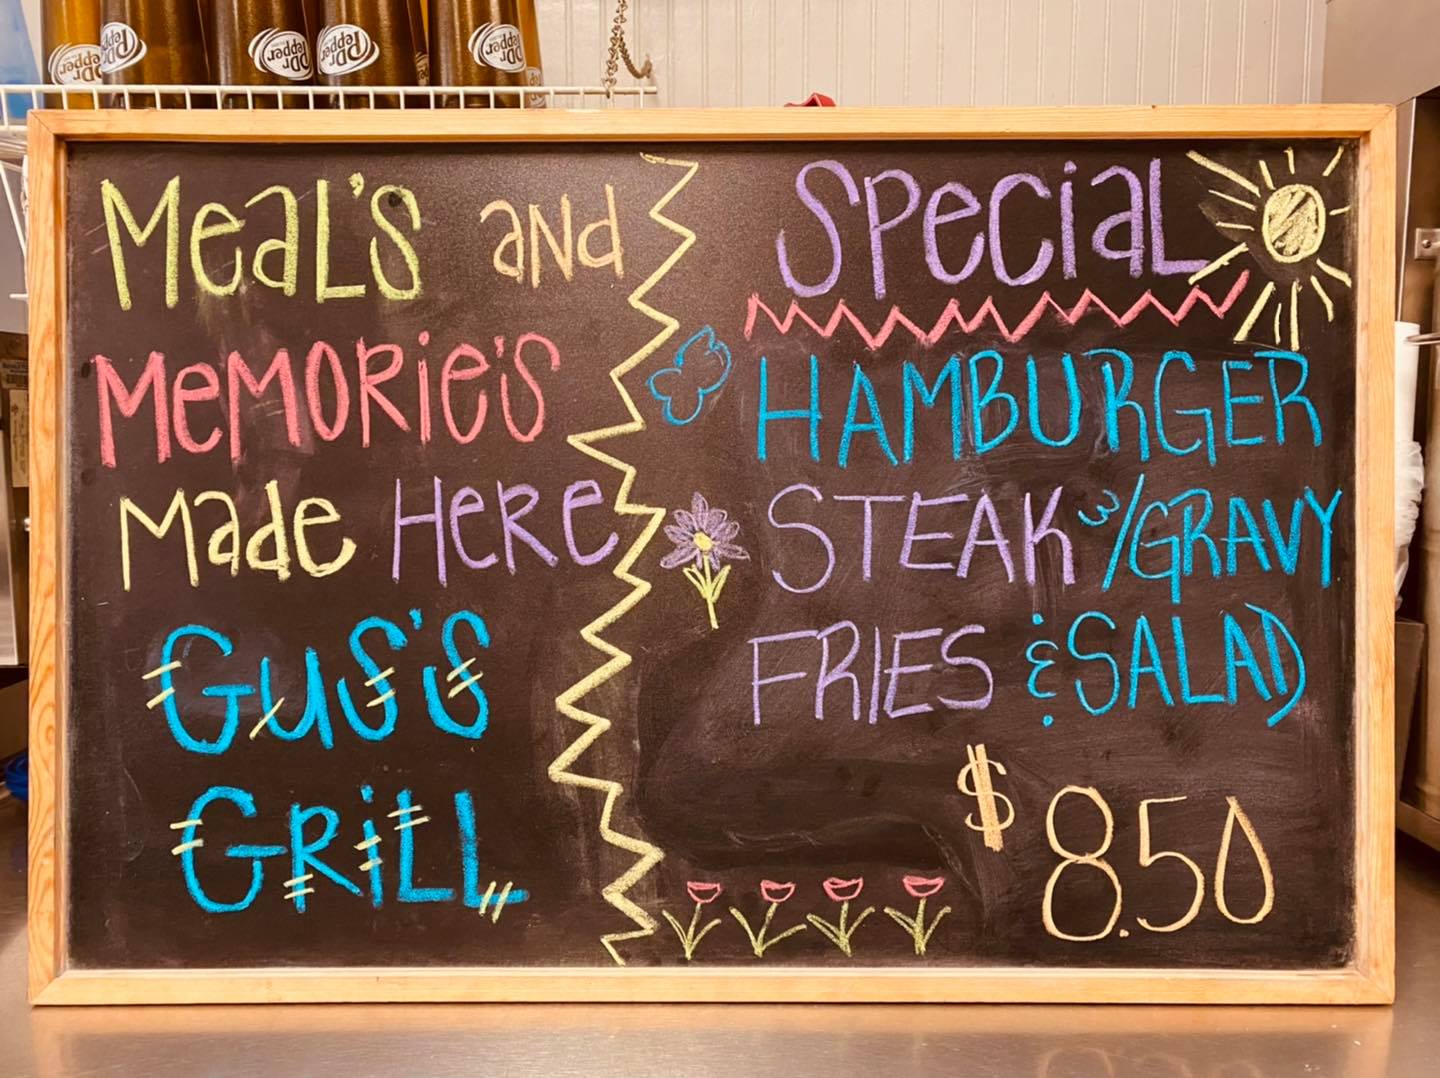 Dr Pepper
Dr Pepper
Dr Pepper
Dr Pepper
Dr Pepper
Meal's and
Memorie's
Made Here
Gus's
Grill
Special
HAMBURGER
STEAK w/GRAVY
FRIES & SALAD
$8.50